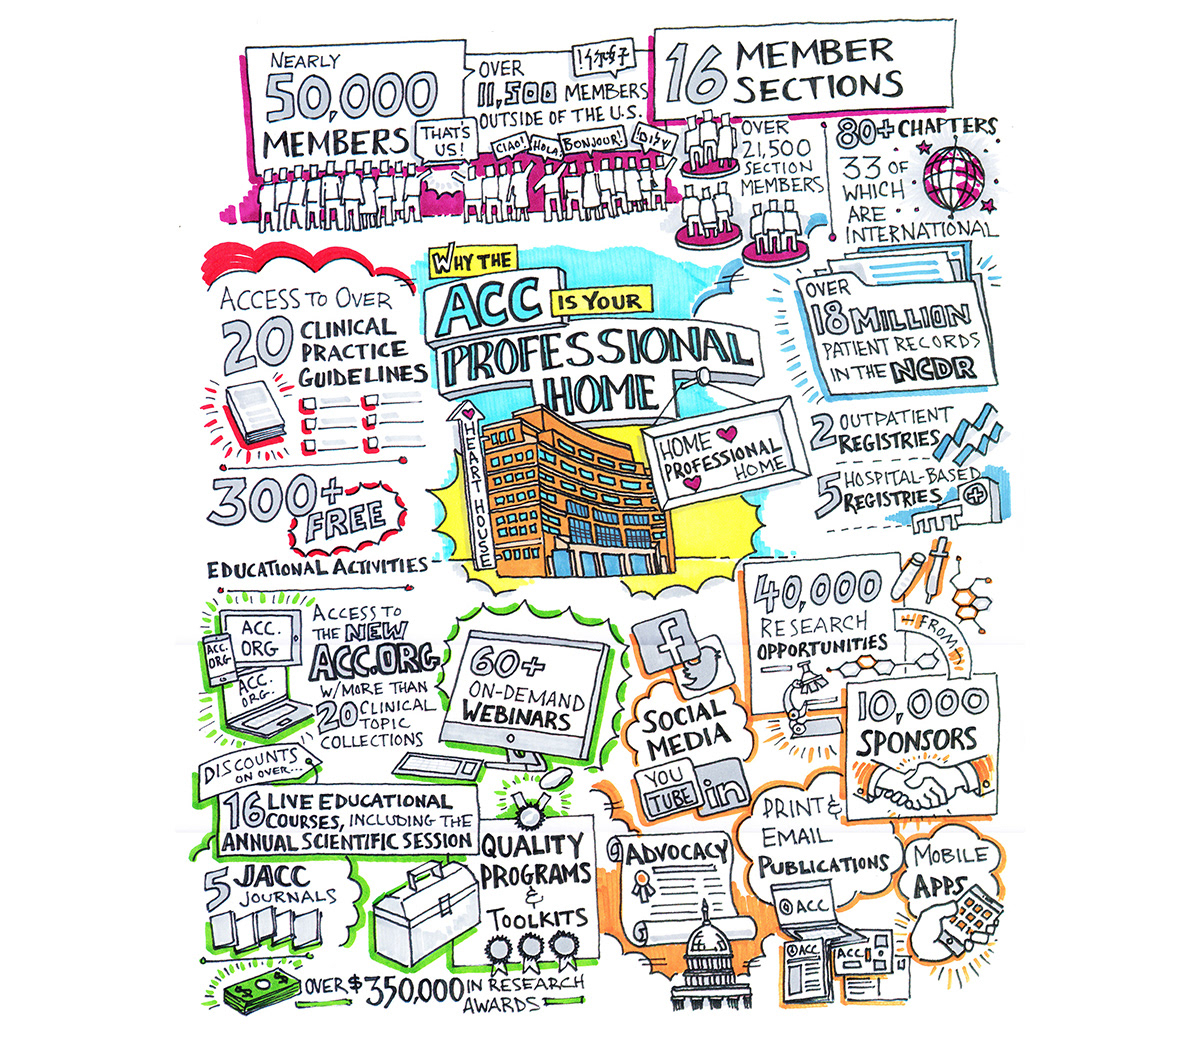 NEARLY
50,000
MEMBERS
THAT'S
US!
OVER
11,500 MEMBERS
OUTSIDE OF THE U.S.
CIAO!
HOLA
BONJOUR!
16 MEMBER
SECTIONS
OVER
21,500
SECTION
MEMBERS
80+ CHAPTERS
33 OF
WHICH
ARE
INTERNATIONAL
WHY THE
ACC IS YOUR
PROFESSIONAL
HOME
HEART HOUSE
HOME
PROFESSIONAL
HOME
ACCESS TO OVER
20 CLINICAL
PRACTICE
GUIDELINES
300+
FREE
EDUCATIONAL ACTIVITIES
OVER
18 MILLION
PATIENT RECORDS
IN THE NCDR
2 OUTPATIENT
REGISTRIES
5 HOSPITAL-BASED
REGISTRIES
ACC.
ORG
ACC.
ORG
ACC.
ORG.
ACCESS TO
THE NEW
ACC.ORG
W/MORE THAN
20 CLINICAL
TOPIC
COLLECTIONS
60+
ON-DEMAND
WEBINARS
DISCOUNTS
ON OVER...
16 LIVE EDUCATIONAL
COURSES, INCLUDING THE
ANNUAL SCIENTIFIC SESSION
5 JACC
JOURNALS
QUALITY
PROGRAMS
&
TOOLKITS
OVER $350,000 IN RESEARCH
AWARDS
f
SOCIAL
MEDIA
YOU
TUBE
in
40,000
RESEARCH
OPPORTUNITIES
FROM
10,000
SPONSORS
ADVOCACY
PRINT &
EMAIL
PUBLICATIONS
ACC
ACC
ACC
MOBILE
APPS